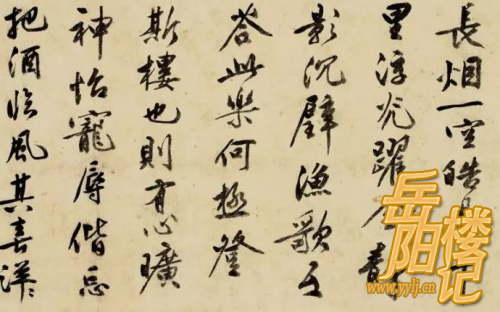 長烟一空皓
里浮光躍金靜
影沉璧漁歌互
答此樂何極登
斯樓也則有心曠
神怡寵辱偕忘
把酒臨風其喜洋
岳阳楼记
www.yylj.cn